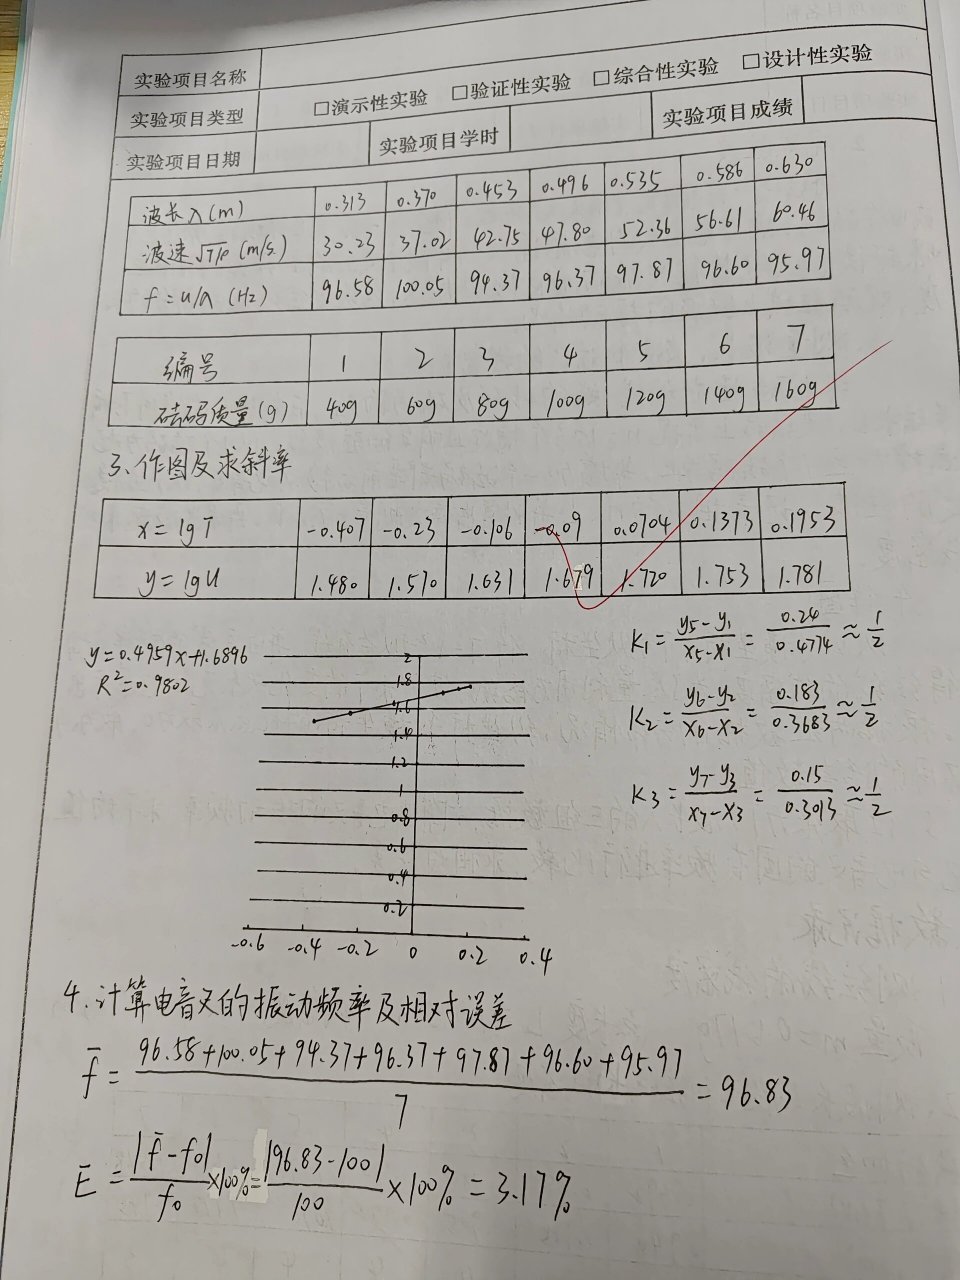 实验项目名称
实验项目类型 □演示性实验 □验证性实验 □综合性实验 □设计性实验
实验项目日期 实验项目学时 实验项目成绩
波长λ(m) 0.313 0.370 0.453 0.496 0.535 0.586 0.630
波速√T/ρ (m/s) 30.23 37.02 42.75 47.80 52.36 56.61 60.46
f=u/λ (Hz) 96.58 100.05 94.37 96.37 97.87 96.60 95.97
编号 1 2 3 4 5 6 7
砝码质量(g) 40g 60g 80g 100g 120g 140g 160g
3、作图及求斜率
x=lgT -0.407 -0.23 -0.106 -0.09 0.0704 0.1373 0.1953
y=lgu 1.480 1.570 1.631 1.679 1.720 1.753 1.781
y=0.4959x+1.6896
R²=0.9802
2
1.8
1.6
1.4
1.2
1
0.8
0.6
0.4
0.2
-0.6 -0.4 -0.2 0 0.2 0.4
K1 = (y5-y1)/(x5-x1) = 0.24/0.4774 ≈ 1/2
K2 = (y6-y2)/(x6-x2) = 0.183/0.3683 ≈ 1/2
K3 = (y7-y3)/(x7-x3) = 0.15/0.3013 ≈ 1/2
4.计算电音叉的振动频率及相对误差
f̄ = (96.58+100.05+94.37+96.37+97.87+96.60+95.97)/7 = 96.83
Ē = |f̄-f0|/f0 ×100% = |96.83-100|/100 ×100% = 3.17%